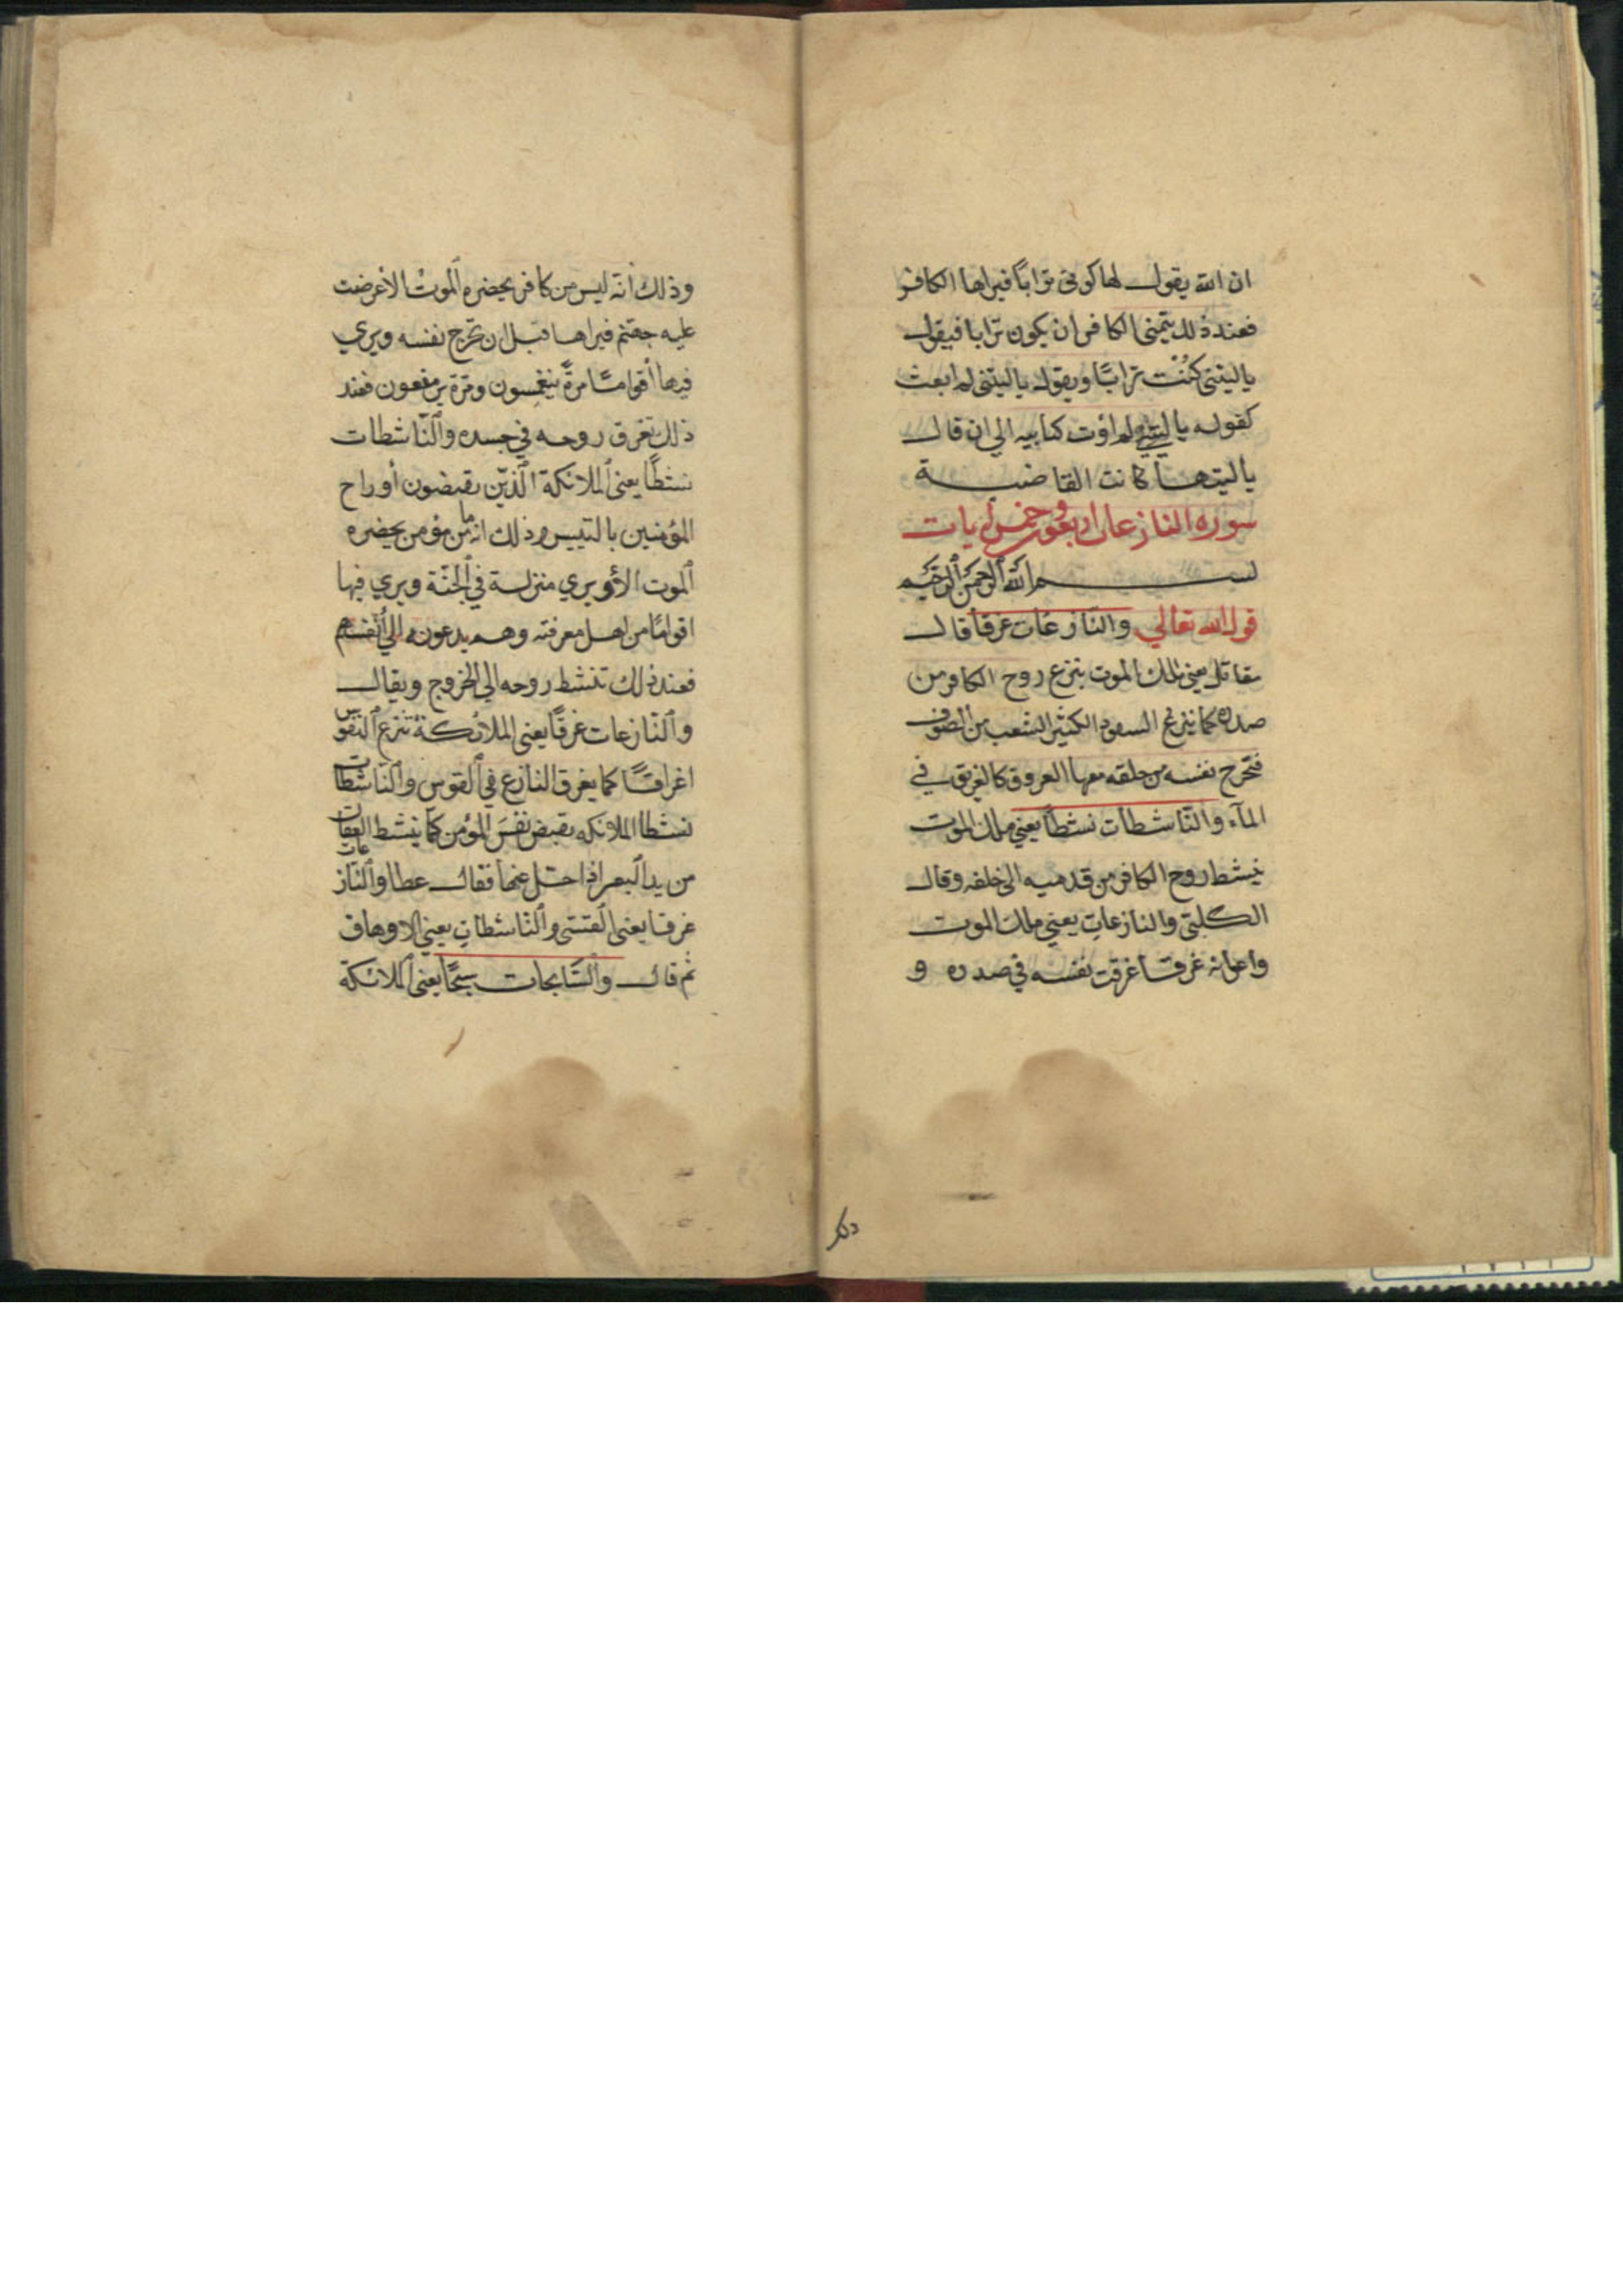 ان الله يقول لها كونى ترابًا فيراها الكافر
فعند ذلك يتمنى الكافر ان يكون ترابا فيقول
ياليتنى كُنْت ترابًا ويقول ياليتنى لم ابعث
كقوله ياليتنى لم اوت كتابيه الي ان قال
ياليتها كانت القاضية
سوره النازعات اربعون وخمس ايات
بسم الله الرحمن الرحيم
قول الله تعالي والنازعات غرقا قال
مقاتل يعنى ملك الموت ينزع روح الكافر من
صدره كما ينزع السفود الكثير الشعب من الصوف
فتخرج نفسه من حلقه معها العروق كالغريق في
المآء والنّاشطات نشطًا يعني ملك الموت
ينشط روح الكافر من قدميه الى خلفه وقال
الكلبى والنازعات يعني ملك الموت
واعوانه غرقا غرقت نفسه في صدره و
دلك
وذلك انّه ليس من كافر يحضره الموت الا عُرضت
عليه جهنّم فيراها قبل ان تخرج نفسه ويري
فيها أقوامًا مرةً ينغمسون ومرّة يرتفعون فعند
ذلك تغرق روحه في جسده والنّاشطات
نشطًا يعنى الملائكة الّذين يقبضون أوراح
المؤمنين بالتيسير وذلك انه ما من مؤمن يحضره
الموت الا ويري منزلة في الجنّة ويري فيها
اقوامًا من اهل معرفته وهم يدعونه الي أنفسهم
فعند ذلك تنشط روحه الي الخروج ويقال
والنّازعات غرقًا يعنى الملائكة تنزع النفوس
اغراقًا كما يغرق النازع في القوس والنّاشطات
نشطا الملائكه يقبض نفسَ المؤمن كما ينشط العقال
من يد البعير اذا حل عنها فقال عطا والنّازعات
غرقا يعنى القسّى والنّاشطاتِ يعني الاوهاق
ثم قال والسّابحات سبحًا يعنى الملائكة